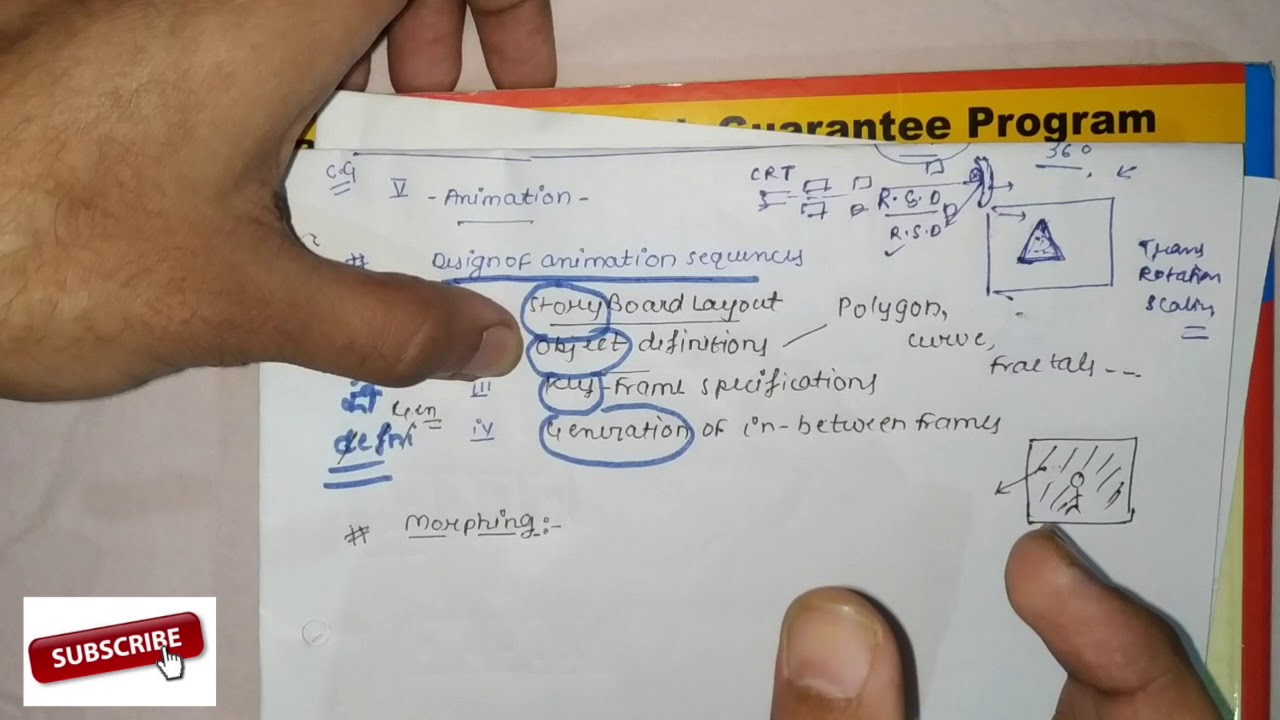 Guarantee Program
C.G
V - Animation -
CRT
R.S.D
R.S.D
360
# Design of animation sequences
Trans
Rotation
Scaling
Story Board Layout
Object definitions
Polygon,
curve,
fractals ---
III Key-Frame specifications
iv Generation of in-between frames
Gen
defni
# Morphing:-
SUBSCRIBE